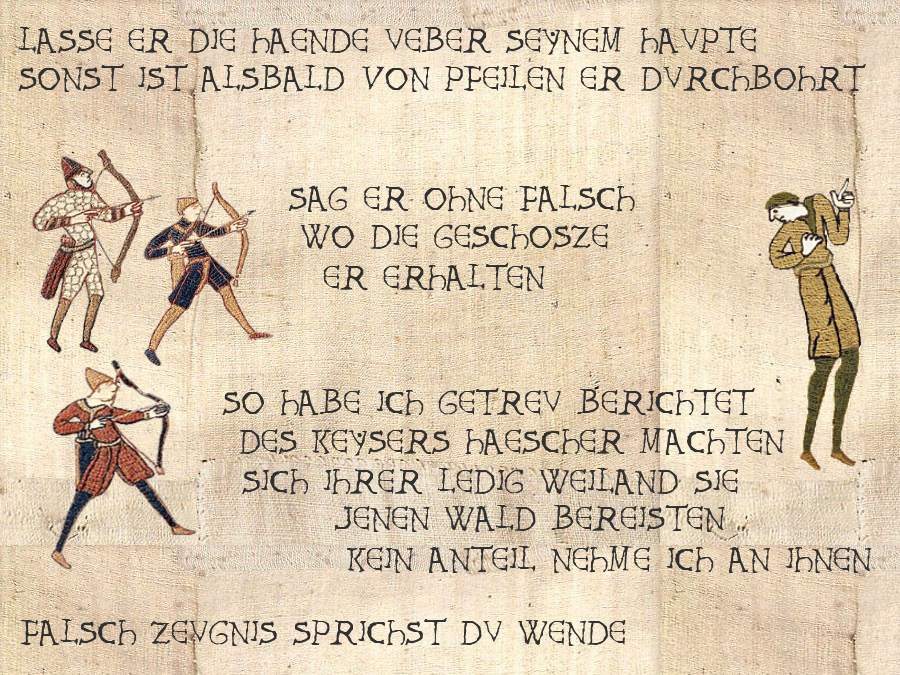 LASSE ER DIE HAENDE VEBER SEYNEM HAVPTE
SONST IST ALSBALD VON PFEILEN ER DVRCHBOHRT
SAG ER OHNE FALSCH
WO DIE GESCHOSZE
ER ERHALTEN
SO HABE ICH GETREV BERICHTET
DES KEYSERS HAESCHER MACHTEN
SICH IHRER LEDIG WEILAND SIE
JENEN WALD BEREISTEN
KEIN ANTEIL NEHME ICH AN IHNEN
FALSCH ZEVGNIS SPRICHST DV WENDE